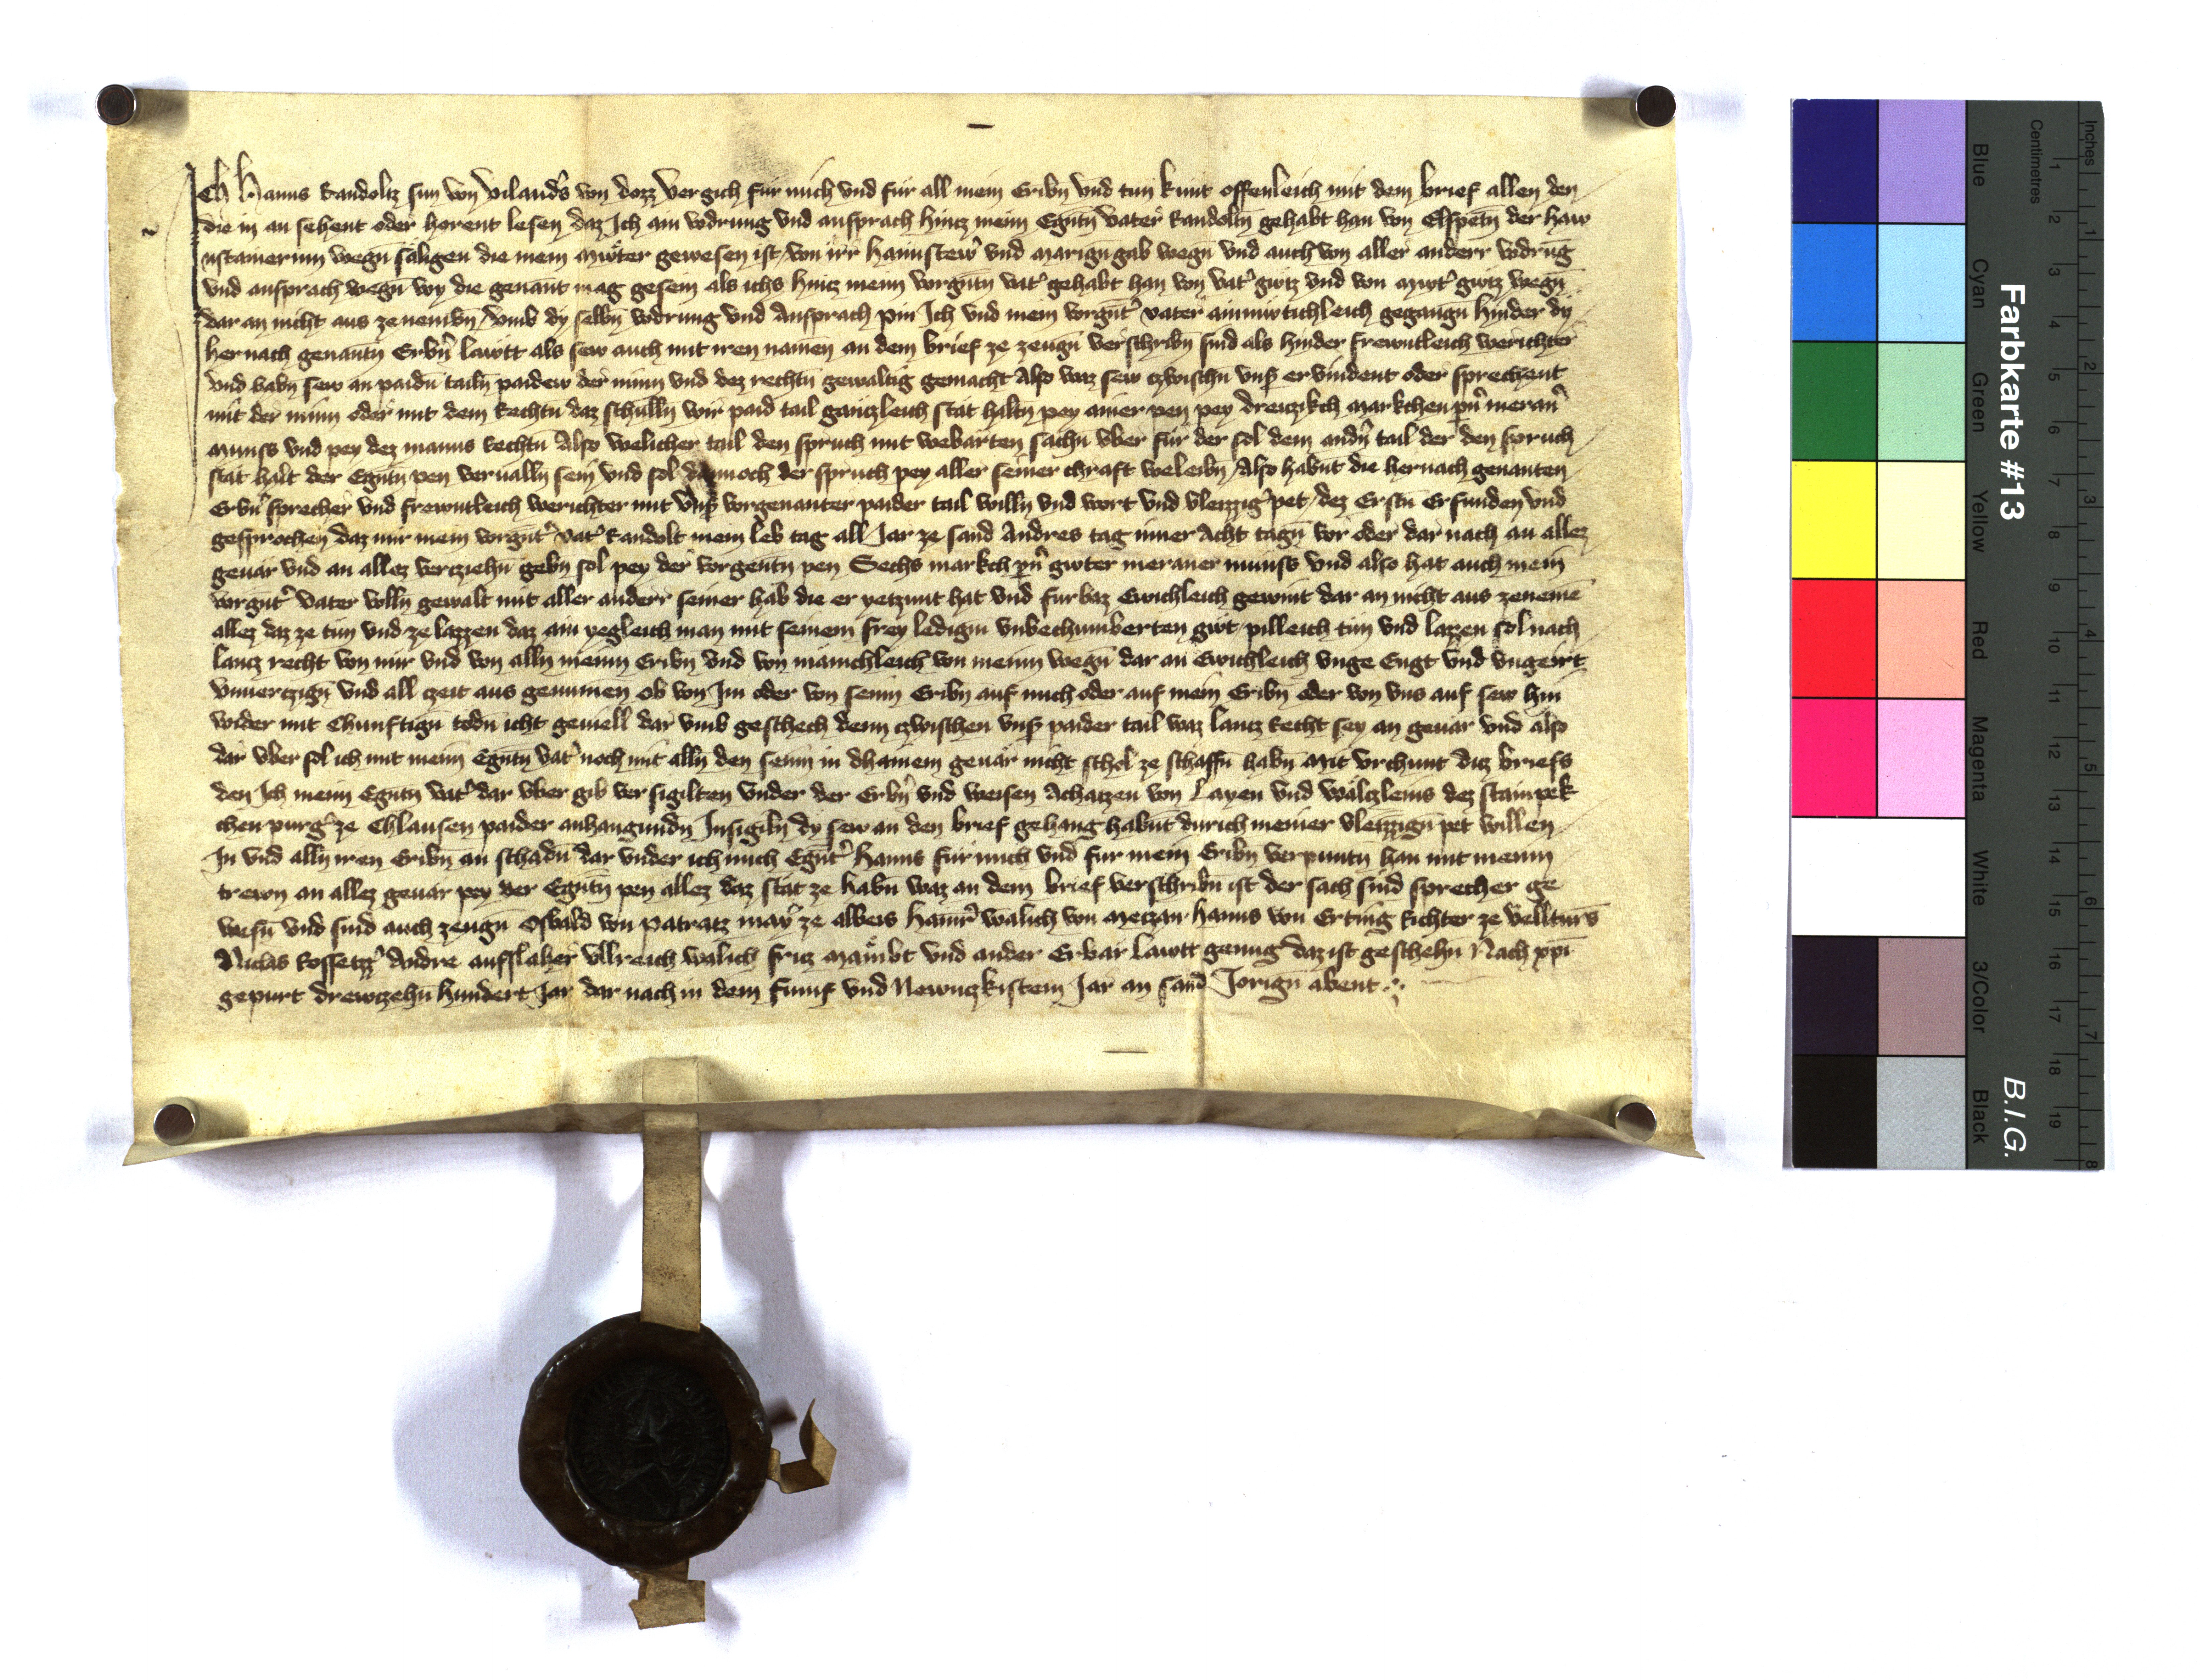 Ich Hanns Randoltz sun von Vilandrs von dozz Vergich fur mich vnd fur all mein Eribn vnd tun kunt offenleich mit dem brief allen den
die in an sehent oder horent lesen daz Ich ain vodrung vnd ansprach hintz meim Egntn vater Randoltn gehabt han von Elspetn der Haw
nstainerinn wegn saligen die mein muoter gewesen ist von irr haimstewr vnd marigngab wegn vnd auch von aller anderr vodrung
vnd ansprach wegn wy die genant mag gesein als ichs hintz meim vorgntn vatr gehabt han von vatr guotz vnd von muotr guotz wegn
dar an nicht aus ze nemibn vmb dy selbn vodrung vnd Ansprach pin Ich vnd mein vorgntr vater ainmutichleich gegangn hinder dy
her nach genantn Erbrn lawtt als sew auch mit iren namen an dem brief ze zeugn verschribn sind als hinder frewntleich werichter
vnd habn sew an paidn tailn paidew der minn vnd dez rechtn gewaltig gemacht Also waz sew czwischn vnsr ervindent oder sprechent
mit der minn oder mit dem Rechtn daz schulln wir paid tail gantzleich stat haltn pey ainer pen pey dreitzkch markchen prn meranr
muniss vnd pey dez manns Rechtn Also welicher tail den spruch mit webarten sachn vber fur der sol dem andrn tail der den spruch
stat halt der Egntn pen verualln sein vnd sol dannoch der spruch pey aller seiner chraft weleibn Also habnt die hernach genanten
Erbrn sprecher vnd frewntleich werichter mit vnsr vorgenanter paider tail willn vnd wort vnd vleizzigr pet dez Erstn Erfunden vnd
gesprochen daz mir mein vorgntr vatr Randolt mein leb tag all Jar ze sand Andres tag inner Acht tagn vor oder dar nach an allez
geuar vnd an allez verziehn gebn sol pey der vorgentn pen Sechs markch prn guoter meraner muniss vnd also hat auch mein
vorgntr vater volln gewalt mit aller anderr seiner hab die er yetzunt hat vnd furbaz Ewichleich gewint dar an nicht aus zenemen
allez daz ze tun vnd ze lazzen daz ain yegleich man mit seinem frey ledigm vnbechumberten guot pilleich tun vnd lazzen sol nach
lantz recht von mir vnd von alln meinn Eribn vnd von mainchleich von meinn wegn dar an Ewichleich vnge Engt vnd vngeirt
vnuerczign vnd all czeit aus genumen ob von Im oder von seinn Eribn auf mich oder auf mein Eribn oder von vns auf sew hin
wider mit Chunftign todn icht geuiell dar vmb geschech denn czwischen vnsr paider tail waz lantz Recht sey an geuar vnd also
dar vber sol ich mit meim Egntn vatr noch mit alln den seinn in dhainem geuar nicht schol ze schaffn habn Mit vrchunt ditz briefs
den Ich meim Egntn vatr dar vber gib ver sigilten vnder der Erbrn vnd weisen Achatzen von Layen vnd waltzleins dez stainpek
chen purgr ze Chlausen paider anhangundn Insigiln dy sew an den brief gehang habnt durich meiner vleizzign pet willen
In vnd alln iren Eribn an schadn dar vnder ich mich Egntr Hanns fur mich vnd fur mein Eribn verpuntn han mit meinn
trewn an allez geuar pey der Egntn pen allez daz stat ze habn waz an dem brief verschribn ist der sach sind sprecher ge
wesn vnd sind auch zeugn Osbald von patratz mayr ze albeis Hainr walich von Metzan Hanns von Erting Richter ze vellturs
Niclas Rossetzr Andre aufslaher vllreich walich fritz maimbt vnd ander Erbar Lawtt genug daz ist geschehn Nach xpi
gepurt drewczehn hundert Jar dar nach in dem funf vnd Newntzkistem Jar an sand Jorign abent
Farbkarte #13
B.I.G.
Inches
Centimetres
1 2 3 4 5 6 7 8 9 10 11 12 13 14 15 16 17 18 19
1 2 3 4 5 6 7 8
Blue
Cyan
Green
Yellow
Red
Magenta
White
3/Color
Black